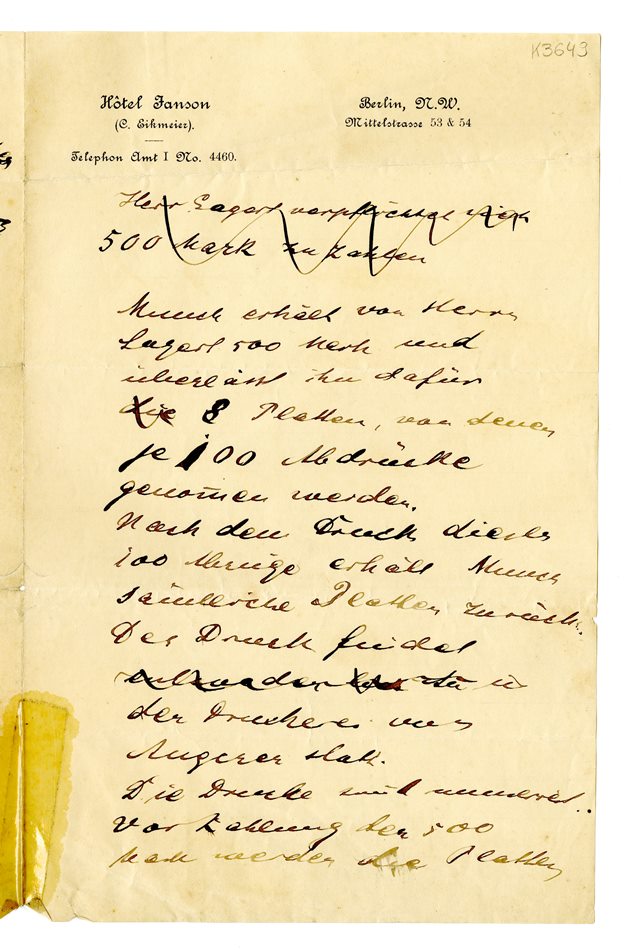 K3643
Hôtel Janson
(C. Eikmeier).
Telephon Amt I No. 4460.
Berlin, N.W.
Mittelstrasse 53 & 54
Herr Lagert verpflichtet sich
500 Mark zu zahlen
Munch erhält von Herrn
Lagert 500 Mark und
überlässt ihn dafür
die 8 Platten, von denen
je 100 Abdrücke
genommen werden.
Nach den Druck dieser
100 Abzüge erhält Munch
sämtliche Platten zurück.
Der Druck findet
entweder in
der Druckerei von
Angerer statt.
Die Drucke sind numerirt..
Vor Zahlung der 500
Mark werden die Platten